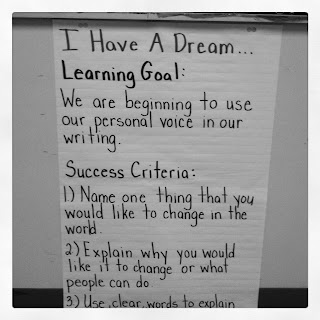 I Have A Dream...
Learning Goal:
We are beginning to use
our personal voice in our
writing.
Success Criteria:
1) Name one thing that you
would like to change in the
world.
2) Explain why you would
like it to change or what
people can do
3) Use clear words to explain